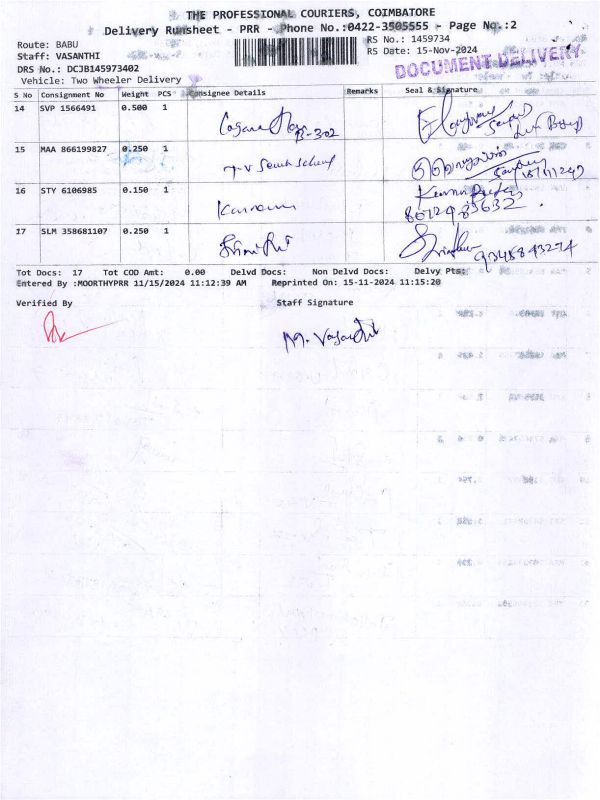 THE PROFESSIONAL COURIERS, COIMBATORE
Delivery Runsheet - PRR - Phone No.:0422-3505555 - Page No.:2
Route: BABU
RS No.: 1459734
Staff: VASANTHI
RS Date: 15-Nov-2024
DOCUMENT DELIVERY
DRS No.: DCJB145973402
Vehicle: Two Wheeler Delivery
S No Consignment No Weight PCS Consignee Details Remarks Seal & Signature
14 SVP 1566491 0.500 1 B-302
15 MAA 866199827 0.250 1
16 STY 6106985 0.150 1
17 SLM 358681107 0.250 1 9345843274
Tot Docs: 17 Tot COD Amt: 0.00 Delvd Docs: Non Delvd Docs: Delvy Pts:
Entered By :MOORTHYPRR 11/15/2024 11:12:39 AM Reprinted On: 15-11-2024 11:15:20
Verified By Staff Signature
M. Vasanthi